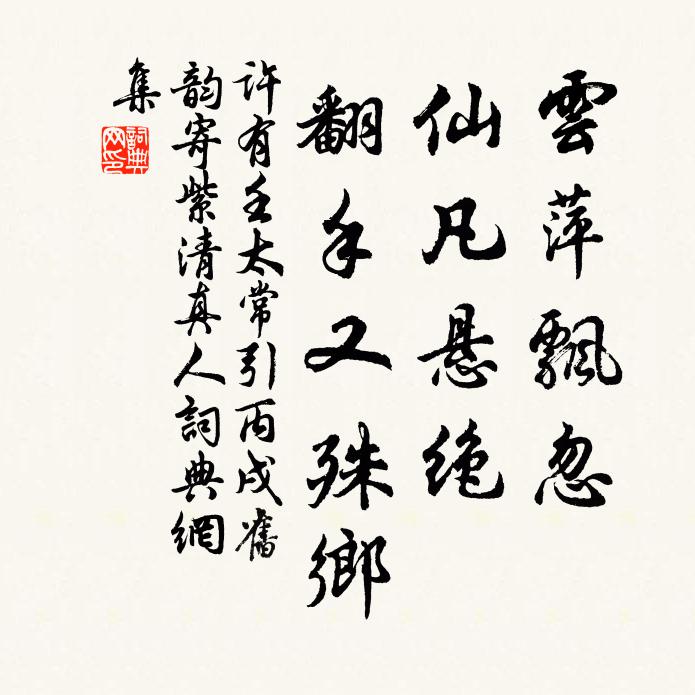 雲萍飄忽
仙凡悬绝
翻手又殊鄉
許有壬太常引丙戌舊
韵寄紫清真人詞典網
集
詞典
网印